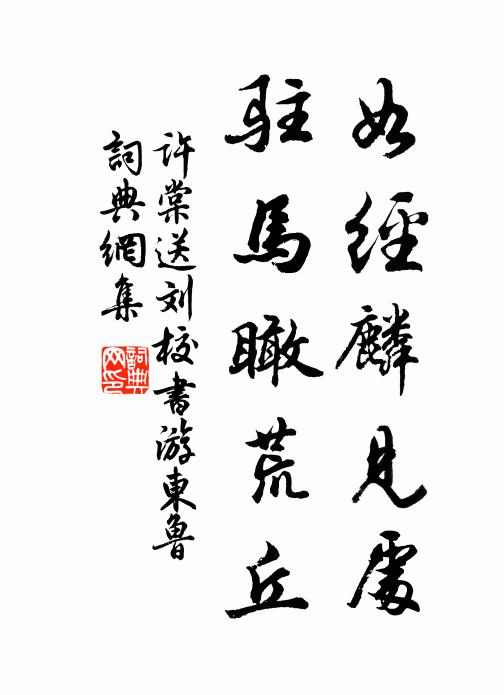 如經麟見處
駐馬瞰荒丘
許棠送刘校書游東魯
詞典網集
詞典
网印